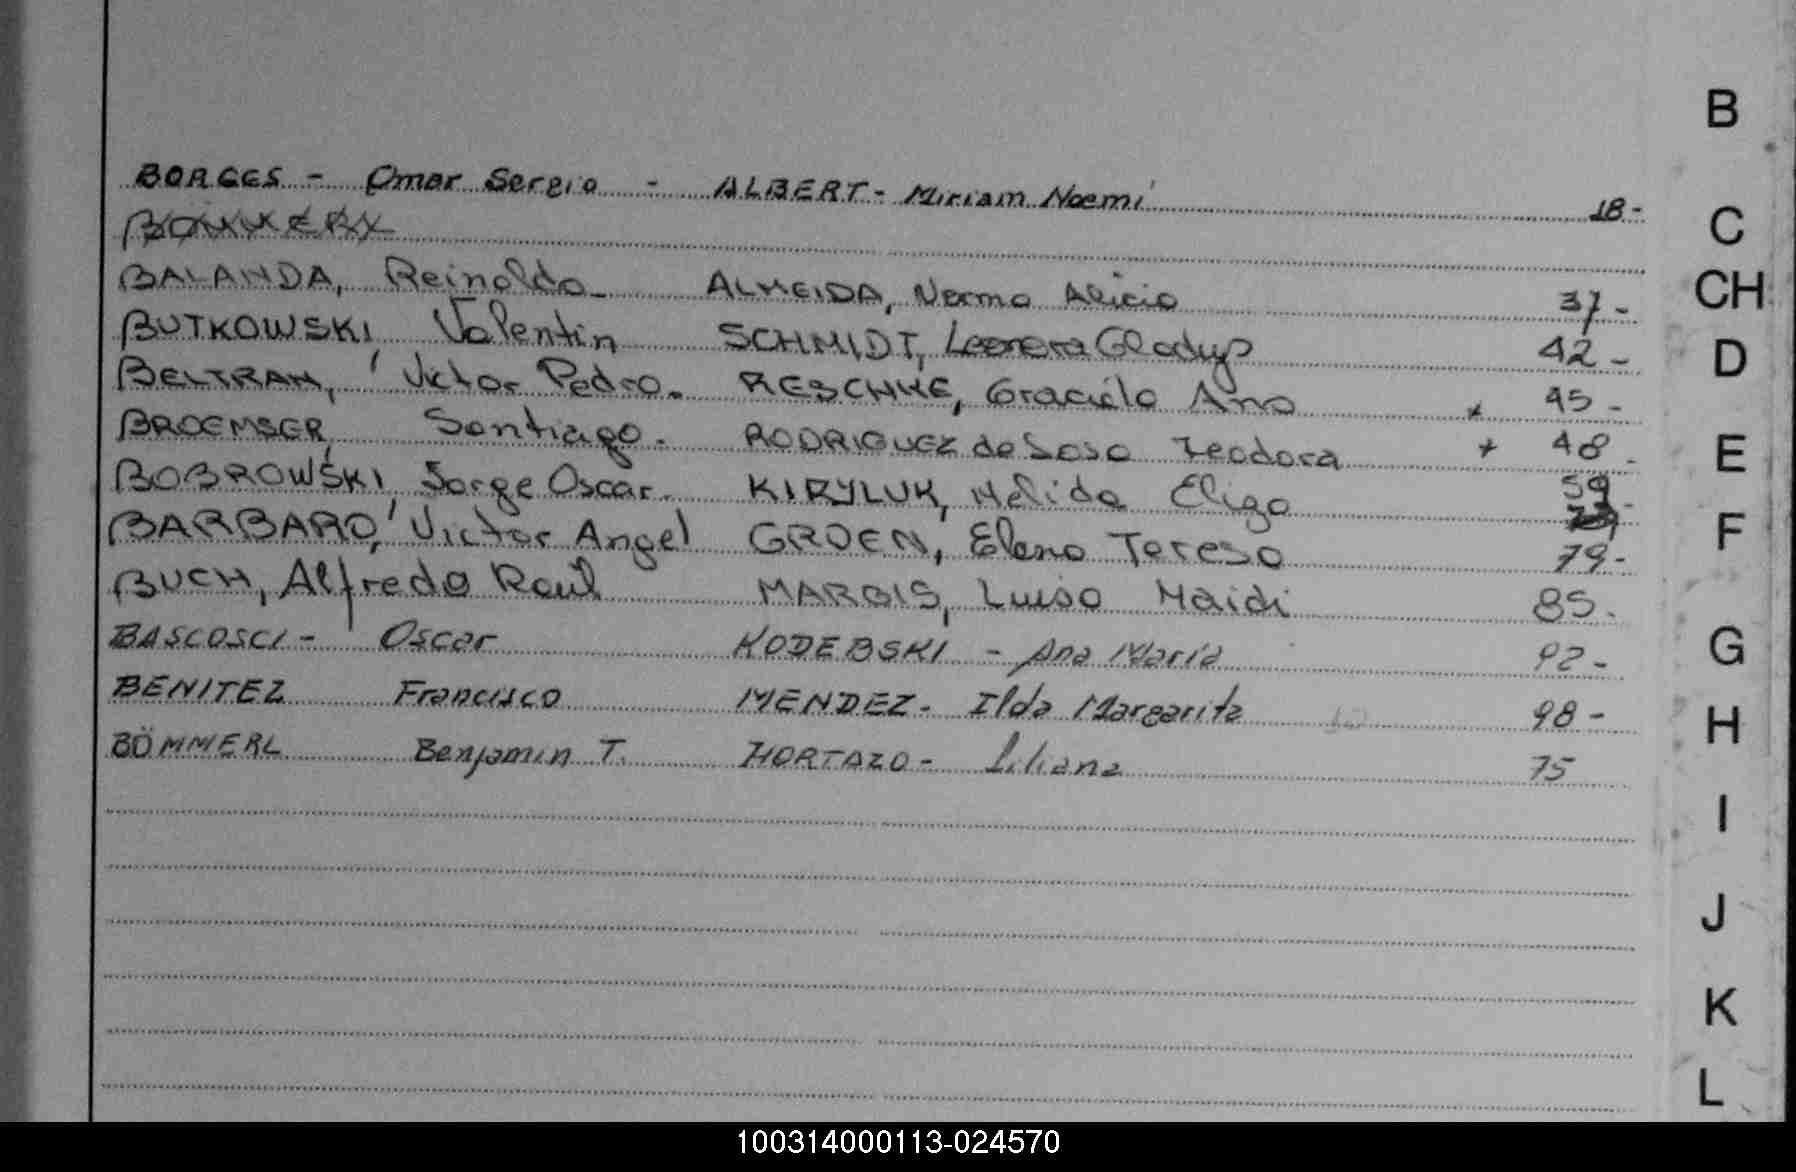 BORGES - Omar Sergio - ALBERT - Miriam Noemi 18-
BALANDA, Reinaldo - ALMEIDA, Norma Alicia 37-
BUTKOWSKI, Valentin SCHMIDT, Leonora Gladys 42-
BELTRAN, Victor Pedro. RESCHKE, Graciela Ana + 45-
BROEMSER, Santiago. RODRIGUEZ de Sosa Teodora + 48-
BOBROWSKI, Jorge Oscar. KIRYLUK, Nelida Eliza 59-
BARBARO, Victor Angel GROEN, Elena Teresa 79-
BUCH, Alfredo Raul MARGIS, Luisa Haidi 85-
BASCOSCI - Oscar KODEBSKI - Ana Maria 92-
BENITEZ Francisco MENDEZ - Ilda Margarita 98-
BÖMMERL Benjamin T. HORTAZO - Liliana 75
B
C
CH
D
E
F
G
H
I
J
K
L
100314000113-024570